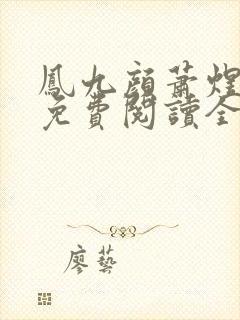 鳳九顏蕭煜
免費閱讀全
廖藝